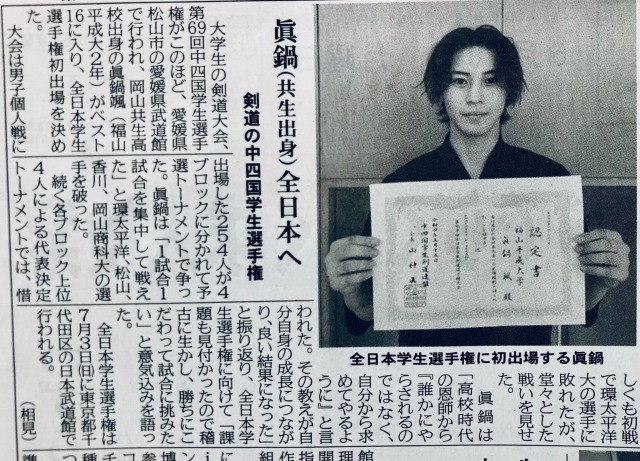 眞鍋(共生出身)全日本へ
剣道の中四国学生選手権
大学生の剣道大会、
第69回中四国学生選手
権がこのほど、愛媛県
松山市の愛媛県武道館
で行われ、岡山共生高
校出身の眞鍋颯(福山
平成大2年)がベスト
16に入り、全日本学生
選手権初出場を決め
た。
大会は男子個人戦に
出場した254人が4
ブロックに分かれて予
選トーナメントで争っ
た。眞鍋は「1試合1
試合を集中して戦え
た」と環太平洋、松山、
香川、岡山商科大の選
手を破った。
続く各ブロック上位
4人による代表決定
トーナメントでは、惜
しくも初戦
で環太平洋
大の選手に
敗れたが、
堂々とした
戦いを見せ
た。
眞鍋は
「高校時代
の恩師から
『誰かにや
らされるの
ではなく、
自分から求
めてやるよ
うに』と言
われた。その教えが自
分自身の成長につなが
り、良い結果になった」
と振り返り、全日本学
生選手権に向けて「課
題も見付かったので稽
古に生かし、勝ちにこ
だわって試合に挑みた
い」と意気込みを語っ
た。
全日本学生選手権は
7月3日(日)に東京都千
代田区の日本武道館で
行われる。
(相見)
全日本学生選手権に初出場する眞鍋
認定書
福山平成大学
眞鍋 颯 殿
中四国学生剣道連盟